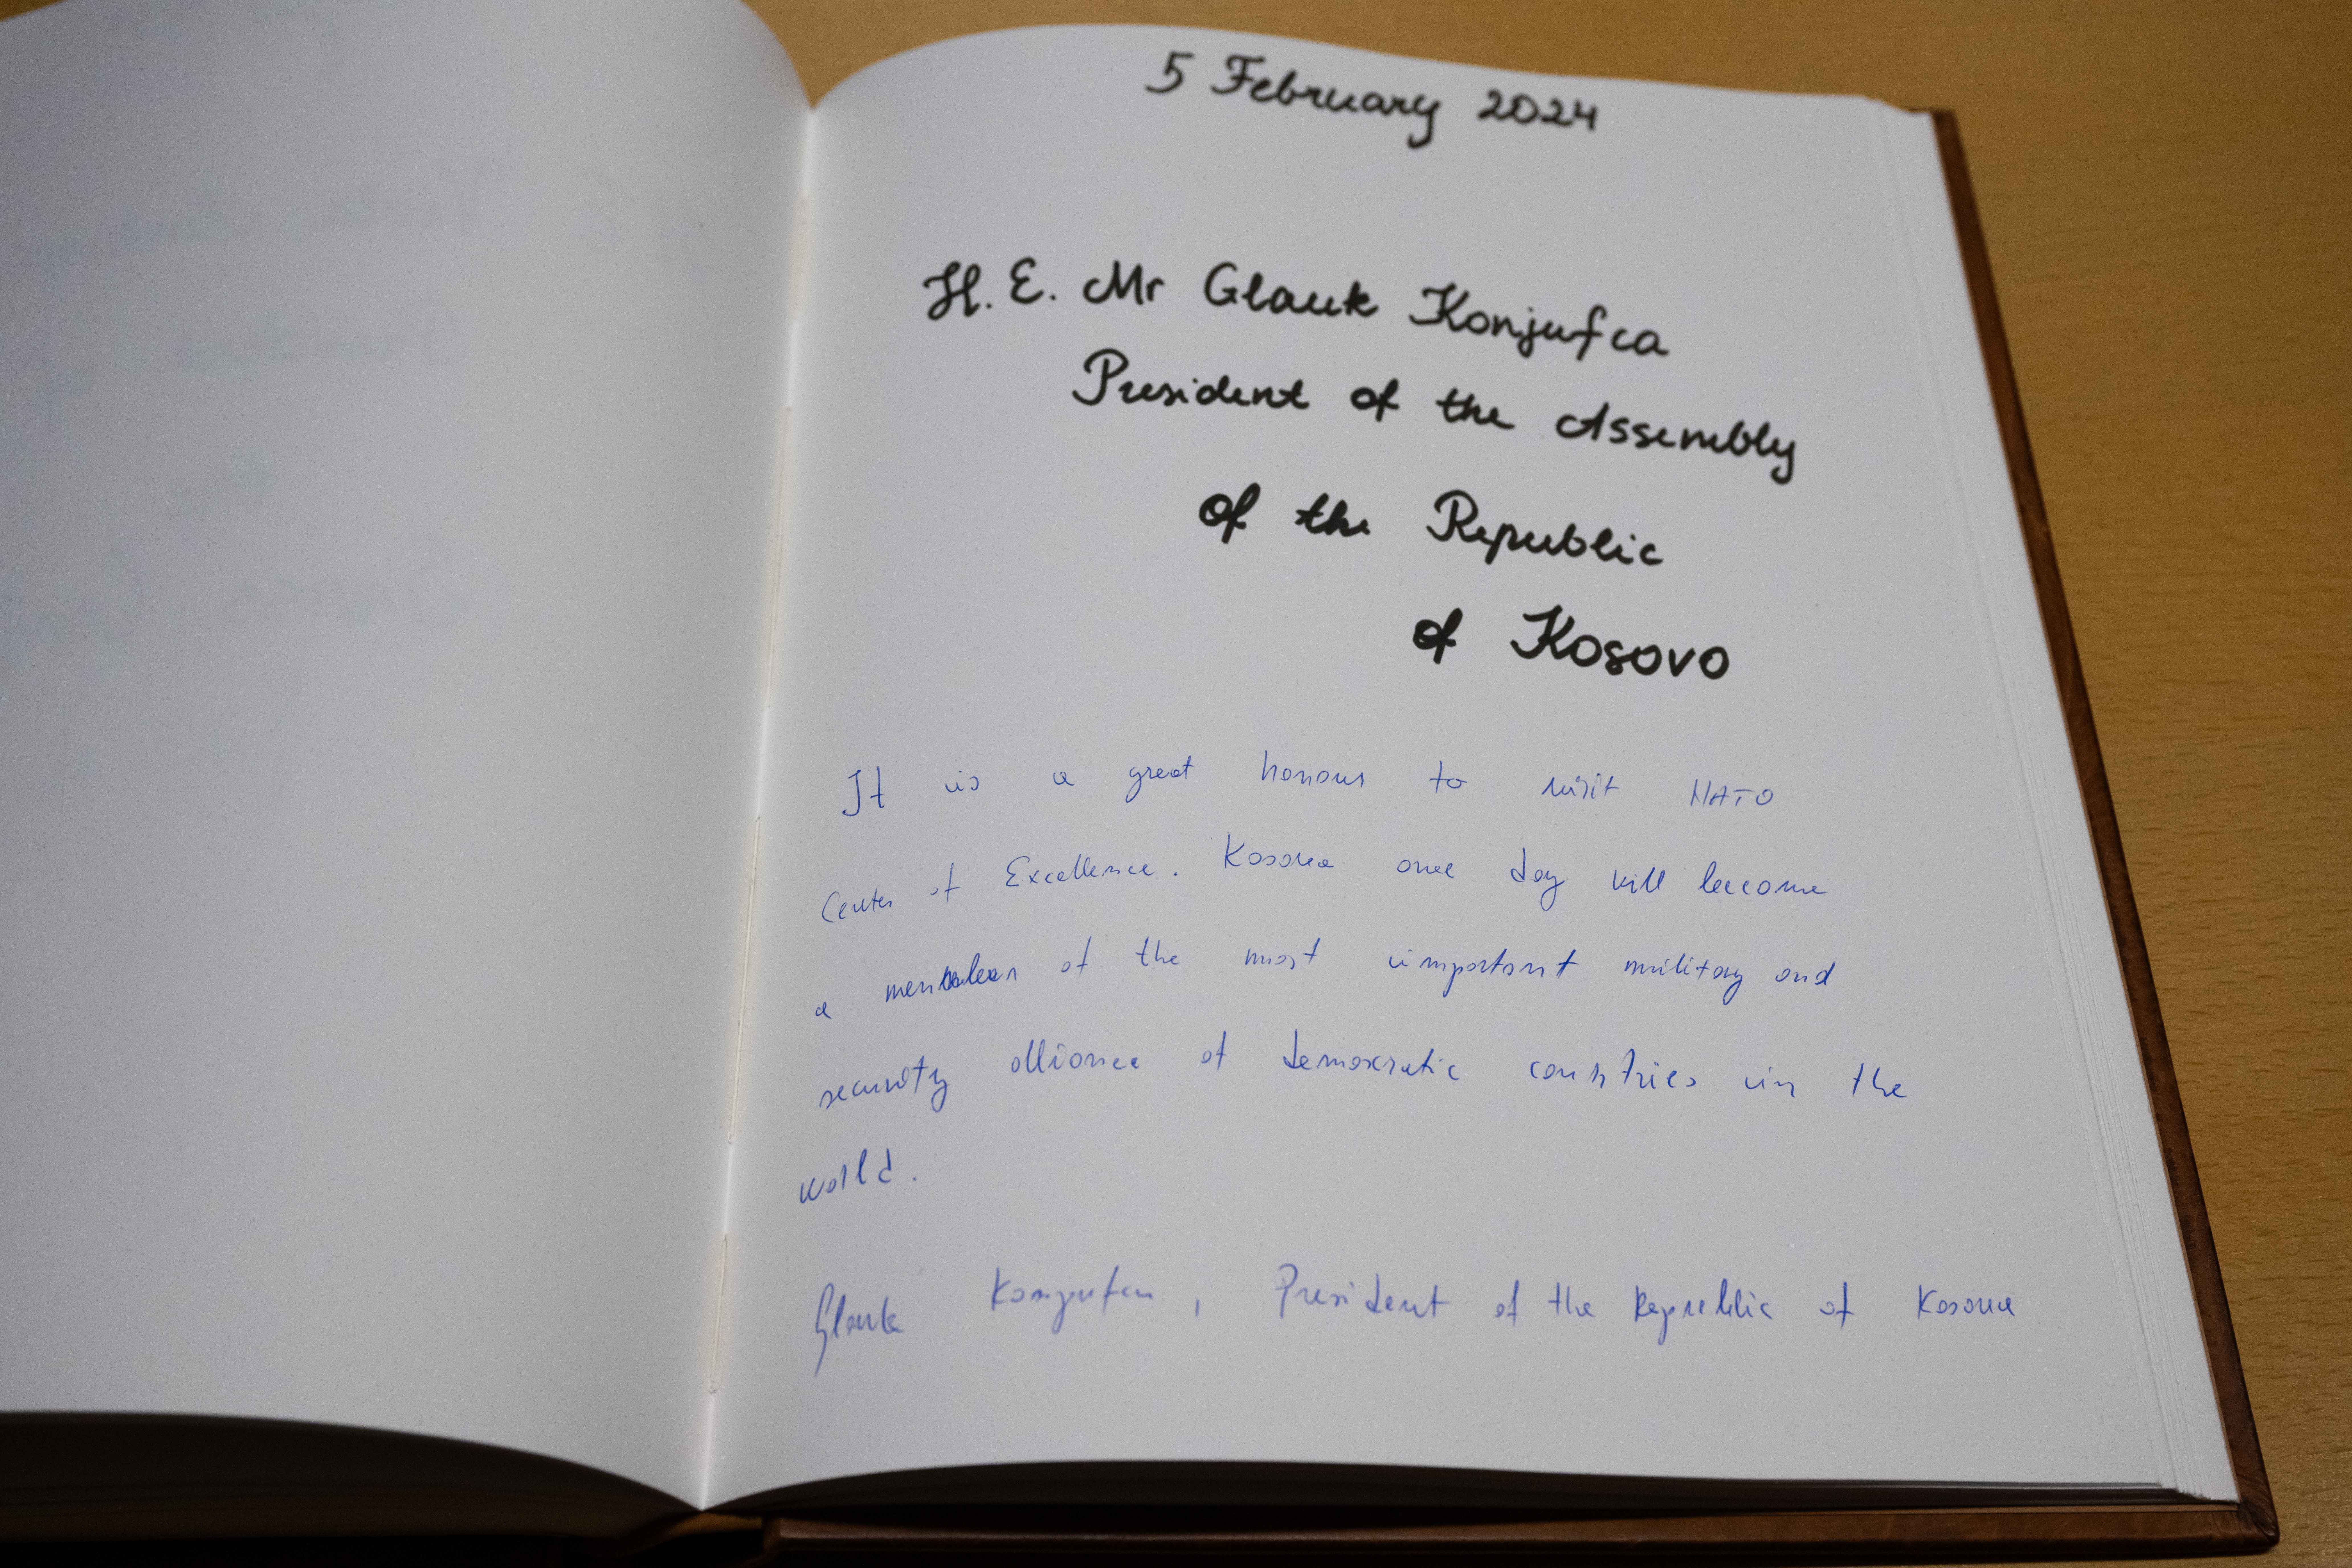 5 February 2024
H. E. Mr Glauk Konjufca
President of the Assembly
of the Republic
of Kosovo
It is a great honour to visit NATO
Center of Excellence. Kosova one day will become
a member of the most important military and
security alliance of democratic countries in the
world.
Glauk Konjufca, President of the Republic of Kosova